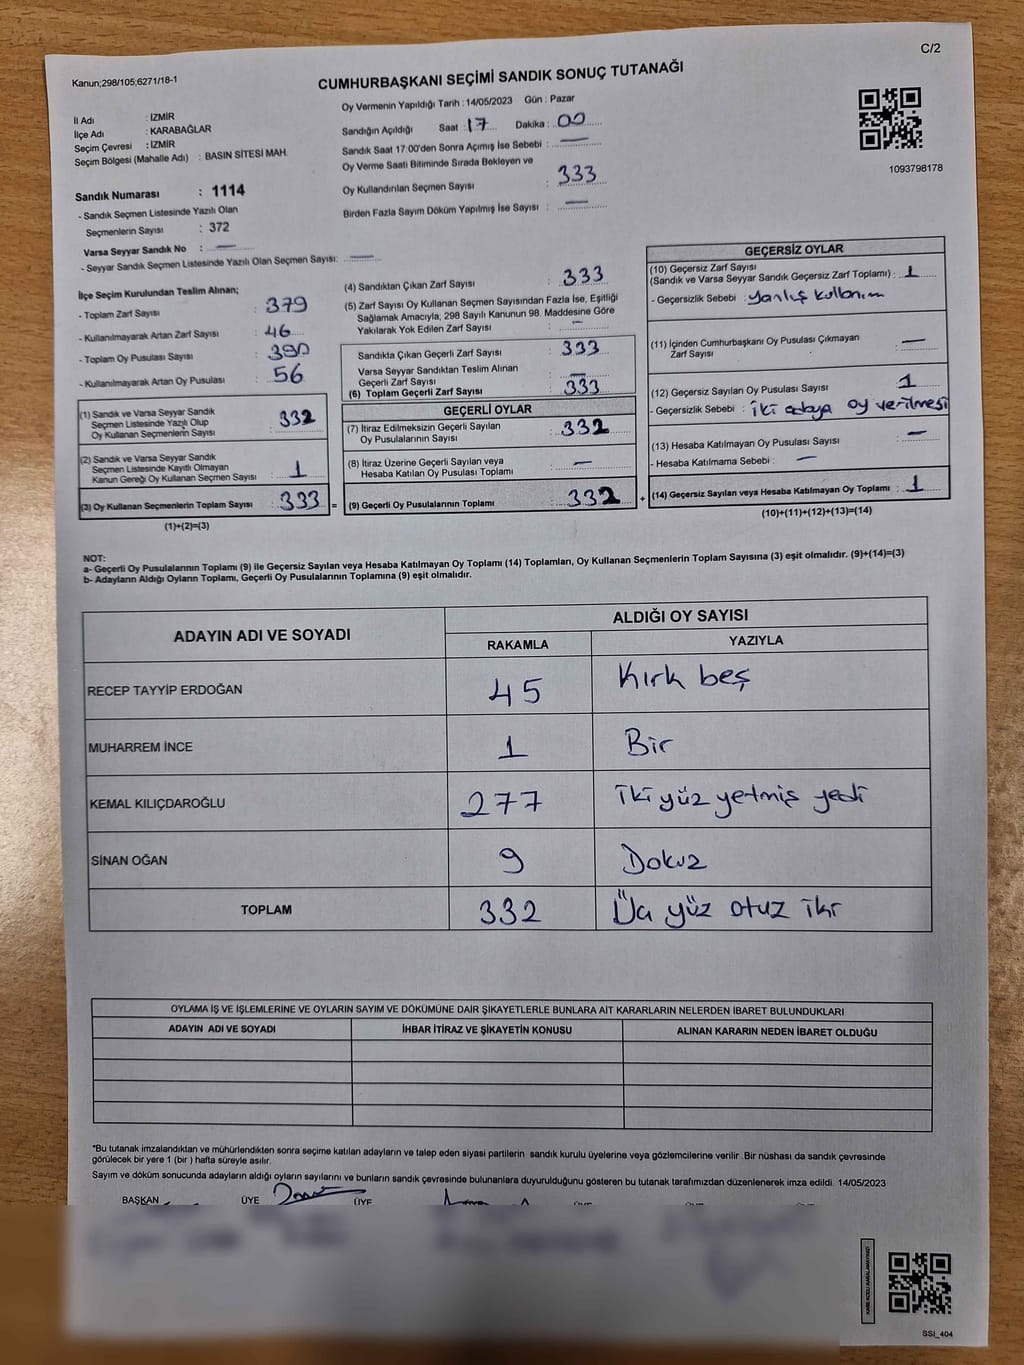 C/2
Kanun;298/105;6271/18-1
CUMHURBAŞKANI SEÇİMİ SANDIK SONUÇ TUTANAĞI
İl Adı : İZMİR
İlçe Adı : KARABAĞLAR
Seçim Çevresi : İZMİR
Seçim Bölgesi (Mahalle Adı) : BASIN SİTESİ MAH.
Sandık Numarası : 1114
- Sandık Seçmen Listesinde Yazılı Olan
Seçmenlerin Sayısı : 372
Varsa Seyyar Sandık No : —
- Seyyar Sandık Seçmen Listesinde Yazılı Olan Seçmen Sayısı: —
Oy Vermenin Yapıldığı Tarih : 14/05/2023 Gün : Pazar
Sandığın Açıldığı Saat : 17 Dakika : 00
Sandık Saat 17:00'den Sonra Açımış İse Sebebi : —
Oy Verme Saati Bitiminde Sırada Bekleyen ve
Oy Kullandırılan Seçmen Sayısı : 333
Birden Fazla Sayım Döküm Yapılmış İse Sayısı : —
1093798178
İlçe Seçim Kurulundan Teslim Alınan;
- Toplam Zarf Sayısı : 379
- Kullanılmayarak Artan Zarf Sayısı : 46
- Toplam Oy Pusulası Sayısı : 390
- Kullanılmayarak Artan Oy Pusulası : 56
(1) Sandık ve Varsa Seyyar Sandık
Seçmen Listesinde Yazılı Olup
Oy Kullanan Seçmenlerin Sayısı : 332
(2) Sandık ve Varsa Seyyar Sandık
Seçmen Listesinde Kayıtlı Olmayan
Kanun Gereği Oy Kullanan Seçmen Sayısı : 1
(3) Oy Kullanan Seçmenlerin Toplam Sayısı : 333 =
(1)+(2)=(3)
(4) Sandıktan Çıkan Zarf Sayısı : 333
(5) Zarf Sayısı Oy Kullanan Seçmen Sayısından Fazla İse, Eşitliği
Sağlamak Amacıyla; 298 Sayılı Kanunun 98. Maddesine Göre
Yakılarak Yok Edilen Zarf Sayısı : —
Sandıkta Çıkan Geçerli Zarf Sayısı : 333
Varsa Seyyar Sandıktan Teslim Alınan
Geçerli Zarf Sayısı : —
(6) Toplam Geçerli Zarf Sayısı : 333
GEÇERLİ OYLAR
(7) İtiraz Edilmeksizin Geçerli Sayılan
Oy Pusulalarının Sayısı : 332
(8) İtiraz Üzerine Geçerli Sayılan veya
Hesaba Katılan Oy Pusulası Toplamı : —
(9) Geçerli Oy Pusulalarının Toplamı : 332 +
GEÇERSİZ OYLAR
(10) Geçersiz Zarf Sayısı
(Sandık ve Varsa Seyyar Sandık Geçersiz Zarf Toplamı) : 1
- Geçersizlik Sebebi : yanlış kullanım
(11) İçinden Cumhurbaşkanı Oy Pusulası Çıkmayan
Zarf Sayısı : —
(12) Geçersiz Sayılan Oy Pusulası Sayısı : 1
- Geçersizlik Sebebi : iki adaya oy verilmesi
(13) Hesaba Katılmayan Oy Pusulası Sayısı : —
- Hesaba Katılmama Sebebi : —
(14) Geçersiz Sayılan veya Hesaba Katılmayan Oy Toplamı : 1
(10)+(11)+(12)+(13)=(14)
NOT:
a- Geçerli Oy Pusulalarının Toplamı (9) ile Geçersiz Sayılan veya Hesaba Katılmayan Oy Toplamı (14) Toplamları, Oy Kullanan Seçmenlerin Toplam Sayısına (3) eşit olmalıdır. (9)+(14)=(3)
b- Adayların Aldığı Oyların Toplamı, Geçerli Oy Pusulalarının Toplamına (9) eşit olmalıdır.
ADAYIN ADI VE SOYADI
ALDIĞI OY SAYISI
RAKAMLA YAZIYLA
RECEP TAYYİP ERDOĞAN 45 Kırk beş
MUHARREM İNCE 1 Bir
KEMAL KILIÇDAROĞLU 277 iki yüz yetmiş yedi
SİNAN OĞAN 9 Dokuz
TOPLAM 332 Üç yüz otuz iki
OYLAMA İŞ VE İŞLEMLERİNE VE OYLARIN SAYIM VE DÖKÜMÜNE DAİR ŞİKAYETLERLE BUNLARA AİT KARARLARIN NELERDEN İBARET BULUNDUKLARI
ADAYIN ADI VE SOYADI İHBAR İTİRAZ VE ŞİKAYETİN KONUSU ALINAN KARARIN NEDEN İBARET OLDUĞU
*Bu tutanak imzalandıktan ve mühürlendikten sonra seçime katılan adayların ve talep eden siyasi partilerin sandık kurulu üyelerine veya gözlemcilerine verilir .Bir nüshası da sandık çevresinde
görülecek bir yere 1 (bir ) hafta süreyle asılır.
Sayım ve döküm sonucunda adayların aldığı oyların sayılarını ve bunların sandık çevresinde bulunanlara duyurulduğunu gösteren bu tutanak tarafımızdan düzenlenerek imza edildi. 14/05/2023
BAŞKAN ÜYE ÜYE
SSİ_404